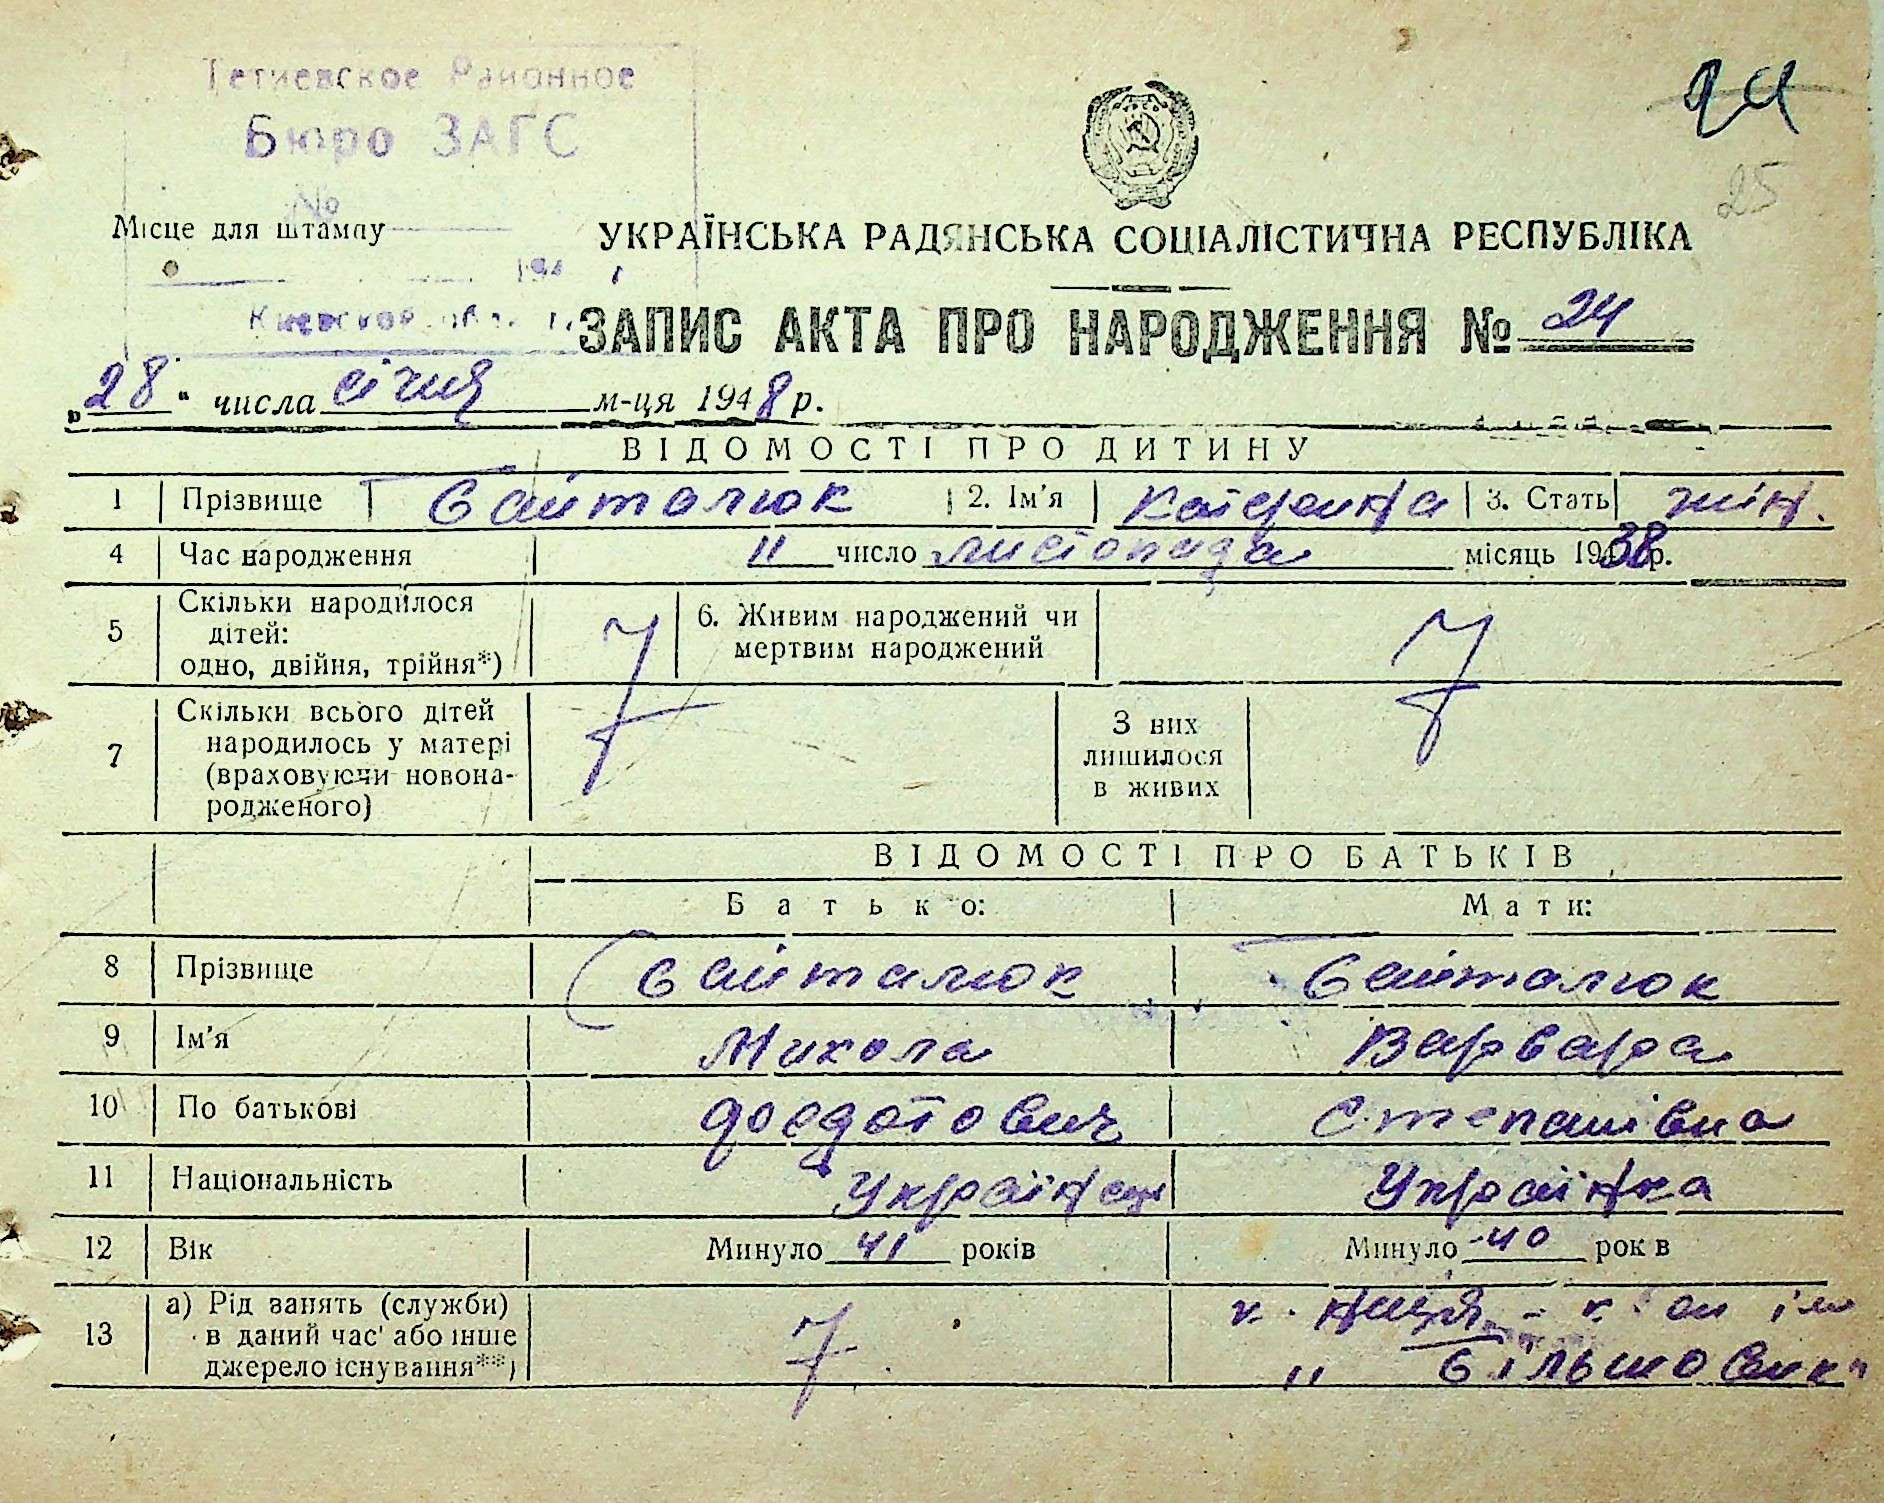 Тетиевское Районное
Бюро ЗАГС
№
24
25
Місце для штампу
УКРАЇНСЬКА РАДЯНСЬКА СОЦІАЛІСТИЧНА РЕСПУБЛІКА
194
Киевской
ЗАПИС АКТА ПРО НАРОДЖЕННЯ № 24
„28“ числа січня м-ця 1948 р.
ВІДОМОСТІ ПРО ДИТИНУ
1 Прізвище Байталюк 2. Ім'я Катерина 3. Стать жін.
4 Час народження 11 число листопада місяць 1938 р.
5 Скільки народилося
дітей:
одно, двійня, трійня*)
6. Живим народжений чи
мертвим народжений
7 Скільки всього дітей
народилось у матері
(враховуючи новона-
родженого)
З них
лишилося
в живих
ВІДОМОСТІ ПРО БАТЬКІВ
Батько: Мати:
8 Прізвище Байталюк Байталюк
9 Ім'я Микола Варвара
10 По батькові Федотович Степанівна
11 Національність Українець Українка
12 Вік Минуло 41 років Минуло 40 років
13 а) Рід занять (служби)
в даний час або інше
джерело існування**)
к-ниця - к ім
"Більшовик"